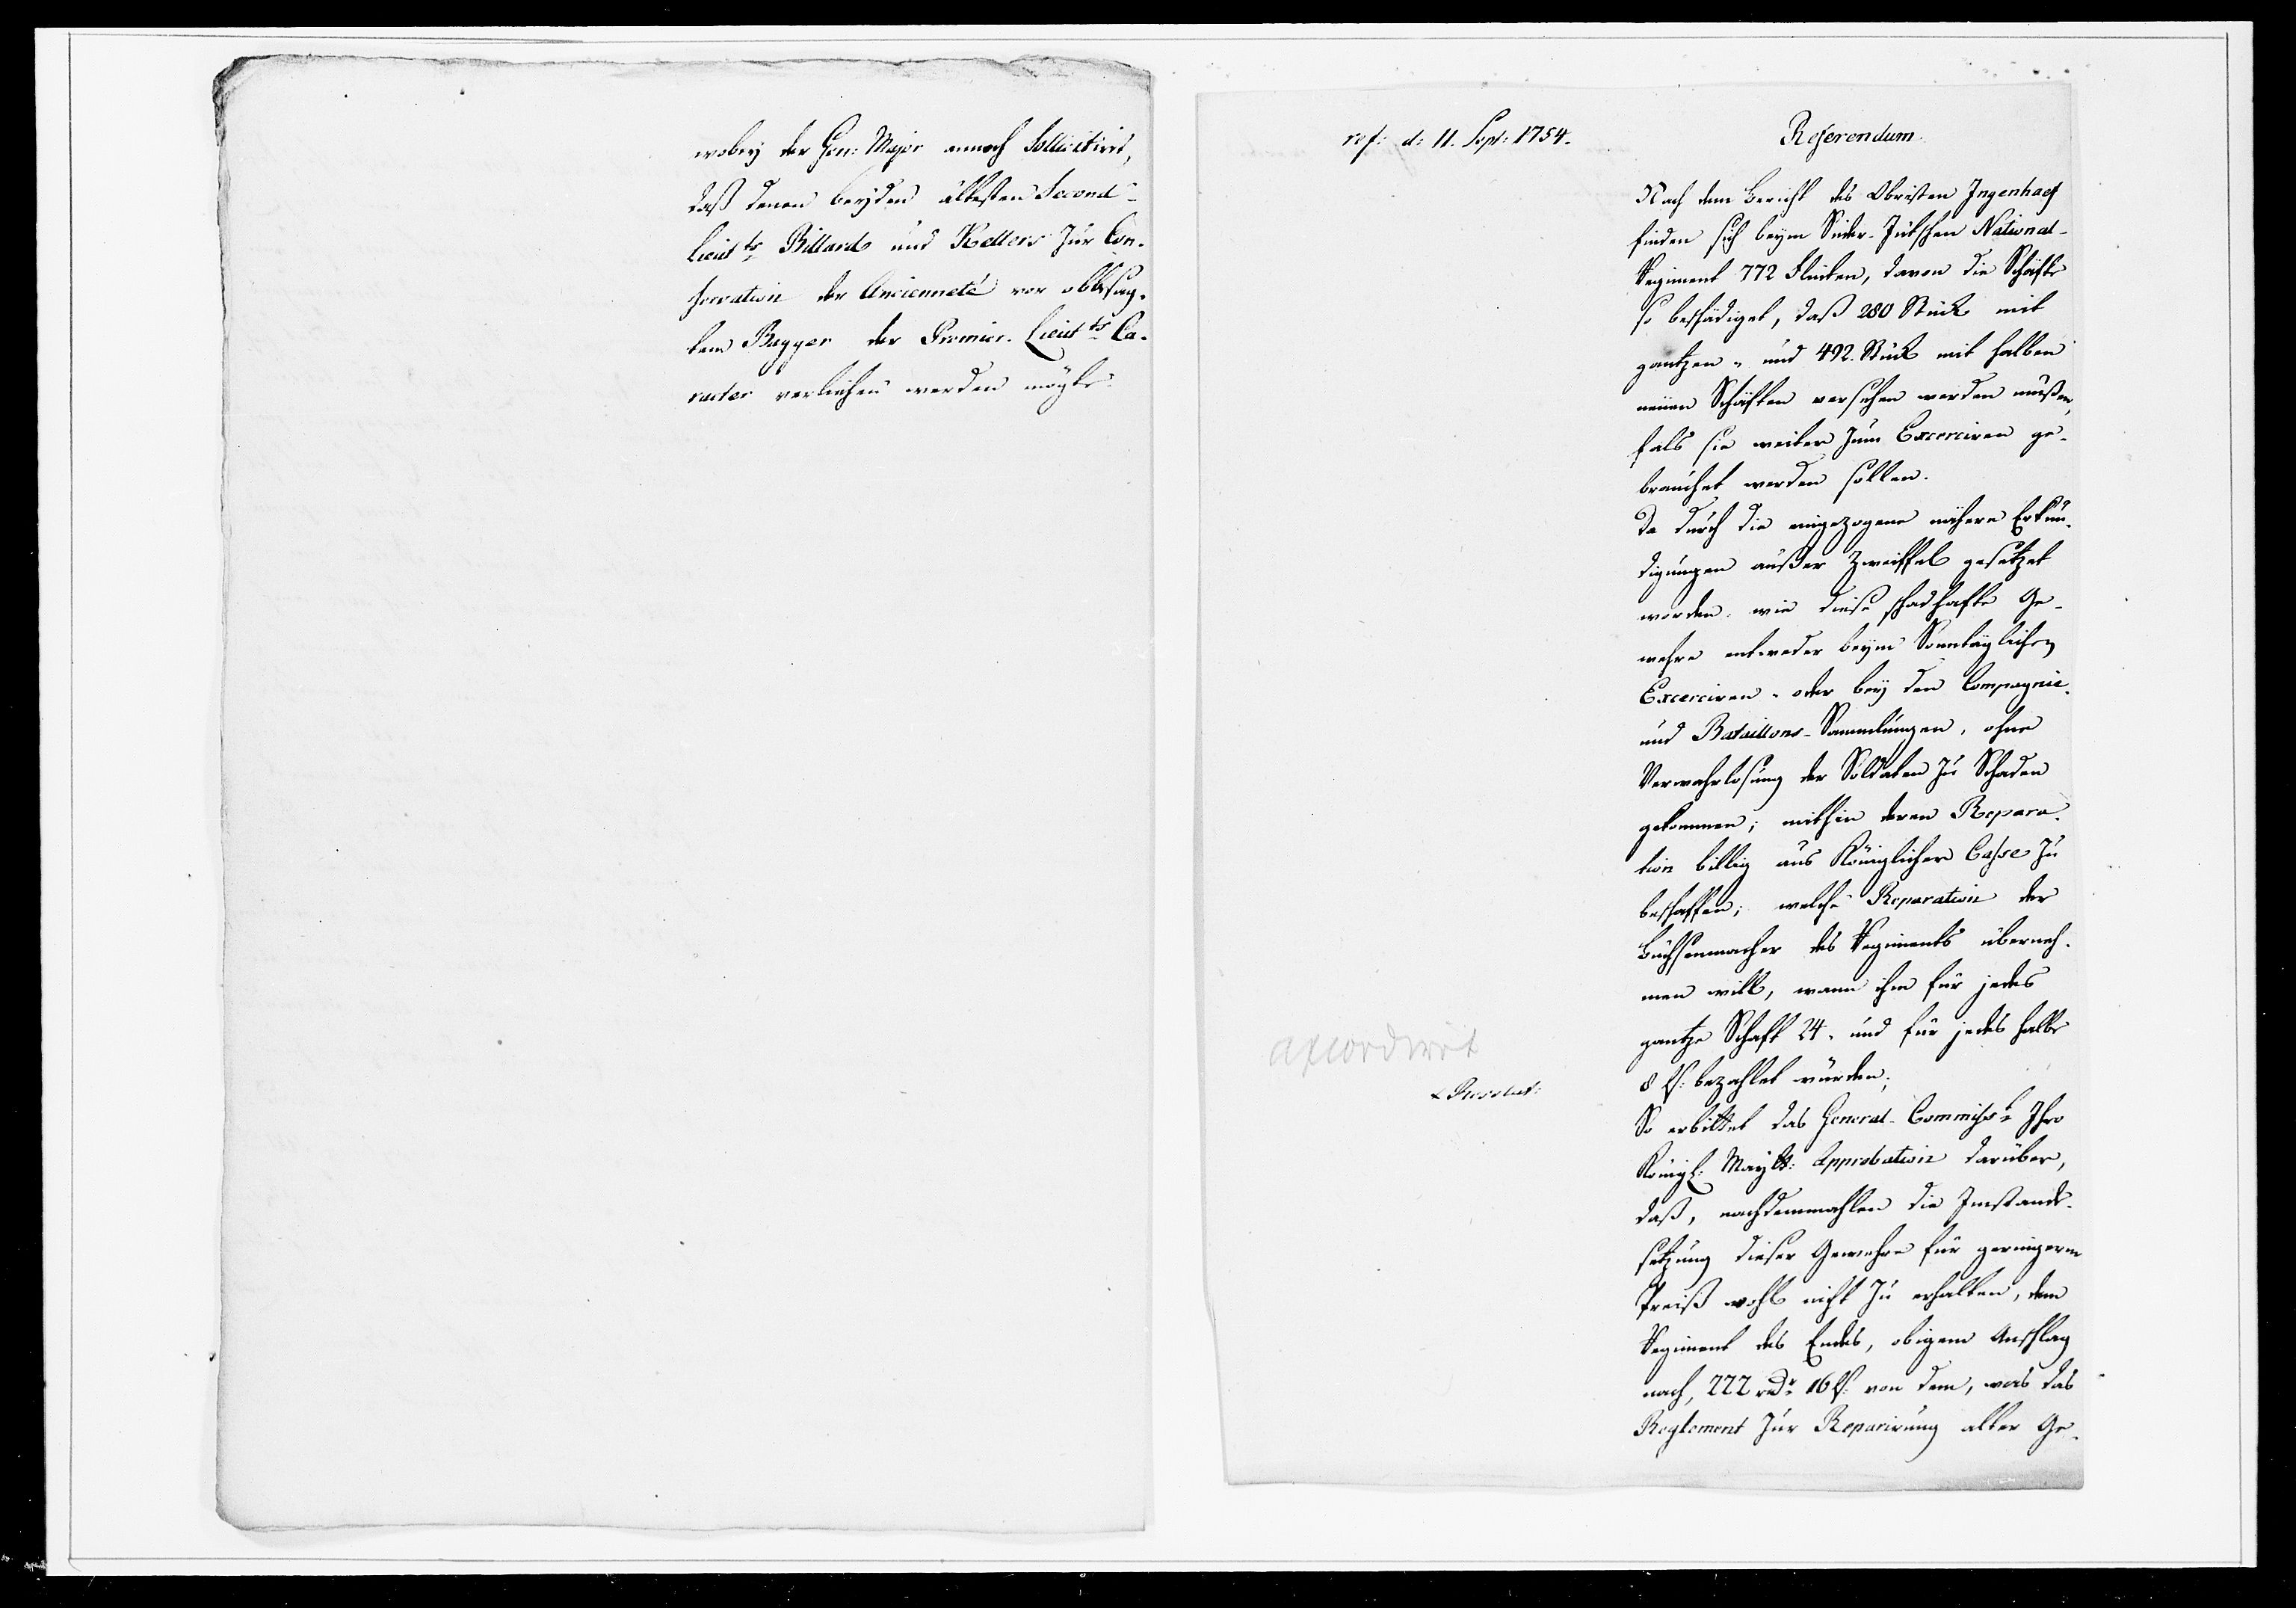 wobey der Gen: Major annoch sollicitirt,
daß denen beyden ältesten Second-
Lieutts Billards und Kellers zur Con-
servation der Ancienneté vor obbesag-
tem Bagger der Premier-Lieutts Ca-
racter verliehen werden mögte.
ref: d: 11. Sept: 1754.
Referendum
Nach dem Bericht des Obristen Ingenhaef
finden sich beym Süder-Jütschen National-
Regiment 772 Flinten, davon die Schäfte
so beschädiget, daß 280 Stück mit
gantzen- und 492. Stück mit halben
neüen Schäften versehen werden müßen,
fals sie weiter zum Excerciren ge-
brauchet werden sollen.
Da durch die eingezogene nähere Erkun-
digungen außer Zweiffel gesetzet
worden, wie diese schadhafte Ge-
wehre entweder beym Sonntäglichen
Excerciren- oder bey den Compagnie-
und Bataillons-Sammlungen, ohne
Verwahrlosung der Soldaten zu Schaden
gekommen; mithin deren Repara-
tion billig aus Königlicher Casse zu
beschaffen; welche Reparation der
Büchsenmacher des Regiments überneh-
men will, wann ihm für jedes
gantze Schaft 24- und für jedes halbe
8 ß. bezahlet würden;
accordirt
Resolut:
So erbittet das General-Commisst Ihro
Königl: Maytt: Approbation darüber,
daß, nachdemmahlen die Instand-
setzung dieser Gewehre für geringeren
Preiß wohl nicht zu erhalten, dem
Regiment des Endes, obigem Anschlag
nach, 222 rdr 16 ß. von dem, was das
Reglement zur Reparirung alter Ge-